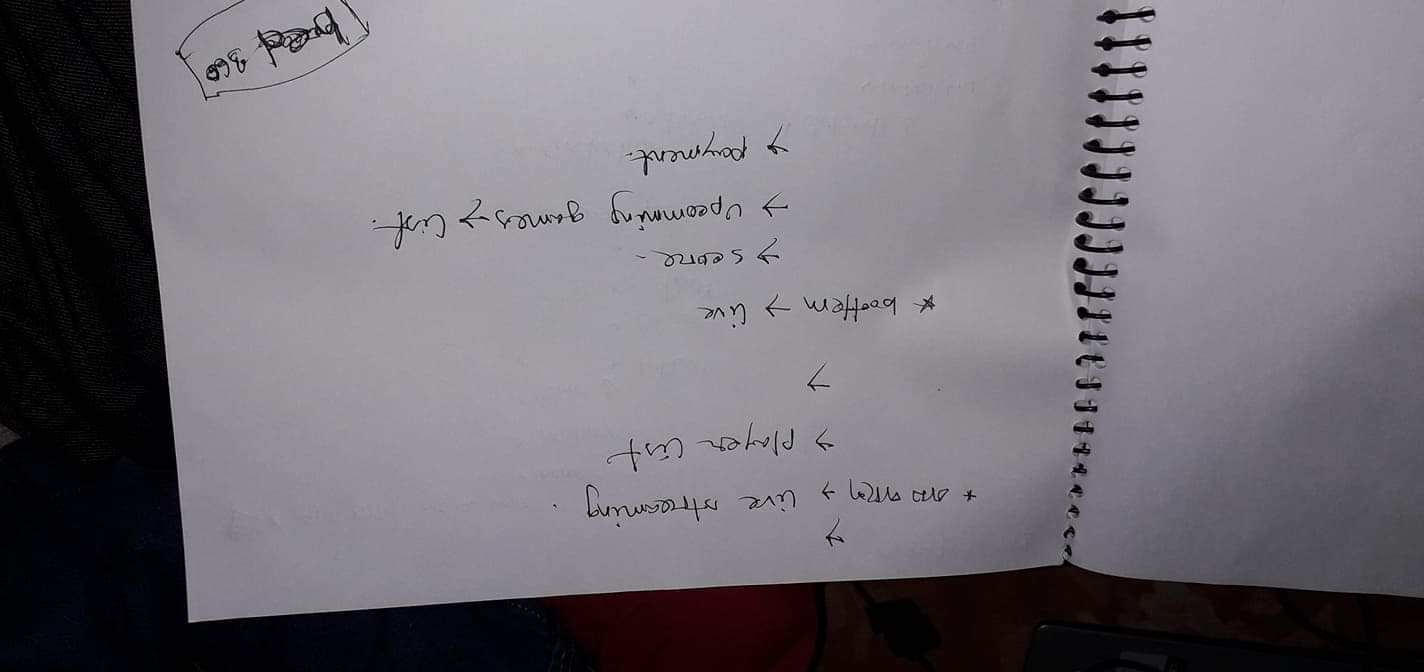 →
* → live streaming.
→ player list
→
* bottem → live
→ score.
→ Upcomming games → list.
→ payment.
360